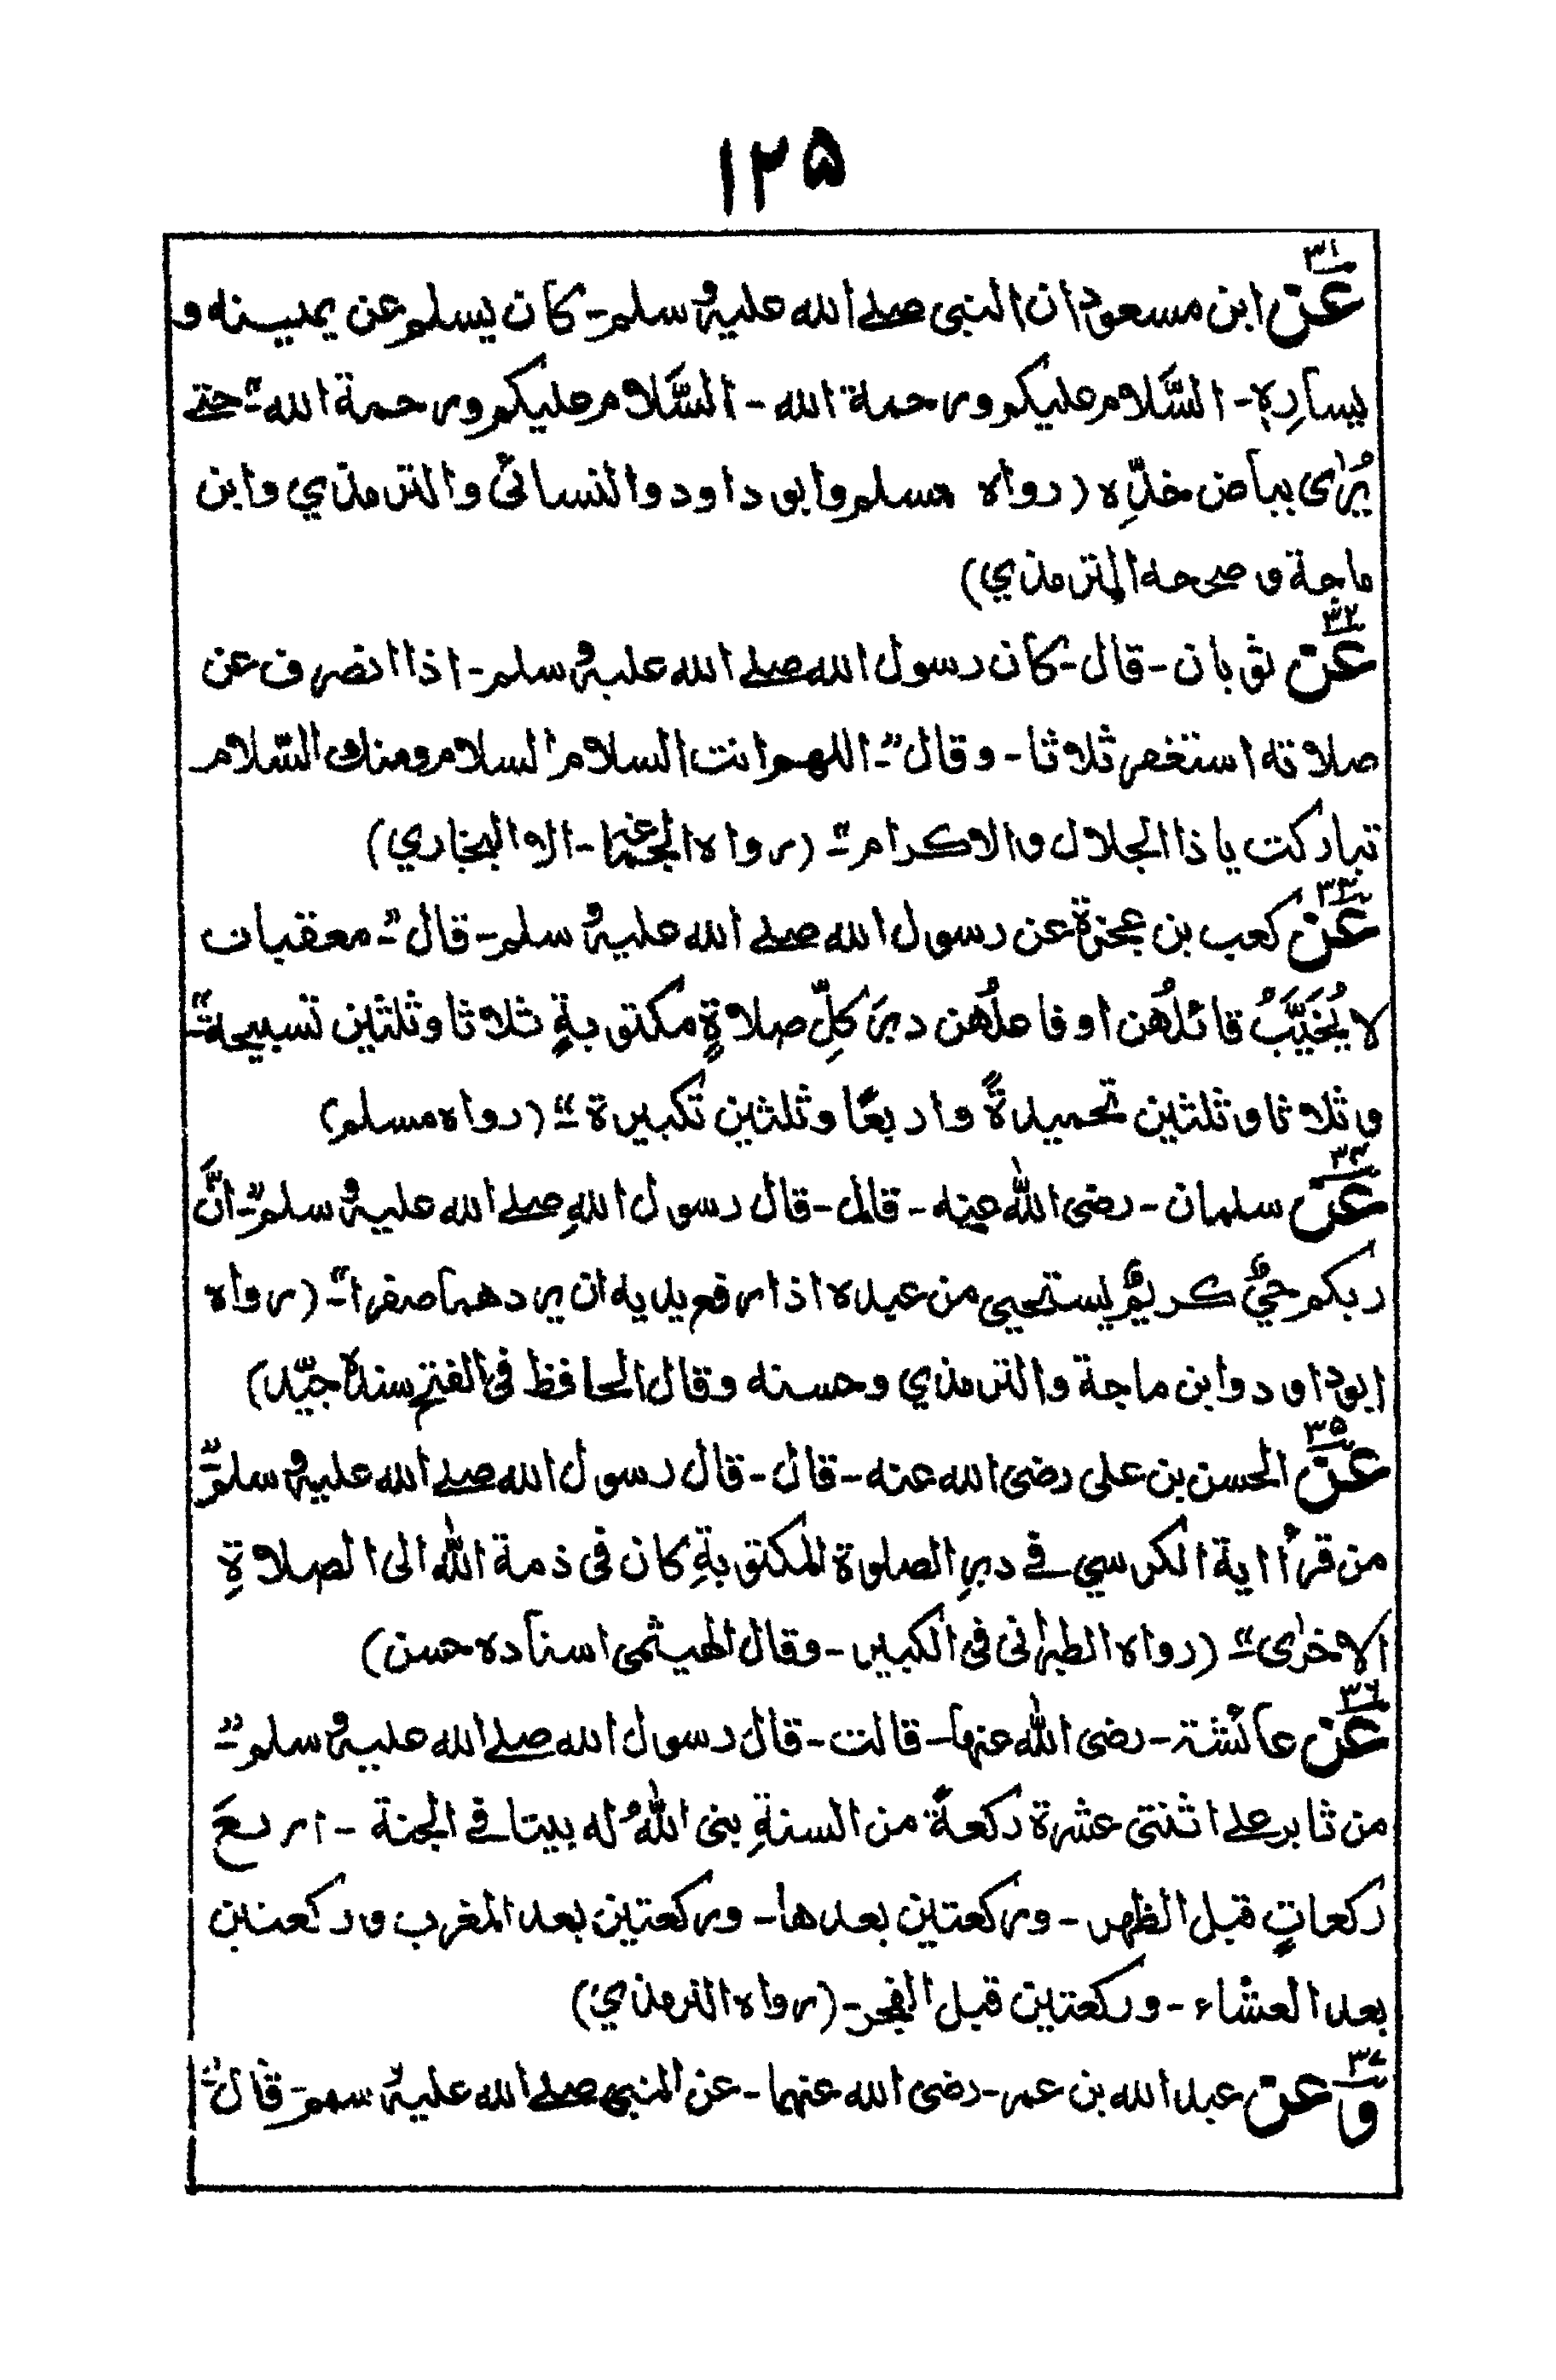 ۱۲۵
۳۱
عَن ابن مسعود ان النبى صلے الله عليه و سلم - كان يسلم عن يمينه و
يسارِهٖ - السَّلام عليكم ورحمة الله - السَّلام عليكم ورحمة الله" - حتے
يُرٰى بياض خدِّه (رواه مسلم وابو داود والنسائى والترمذي وابن
ماجة و صححه الترمذي)
۳۲
عَن ثوبان - قال - كان رسول الله صلے الله عليه و سلم - اذا انصرف عن
صلاته استغفر ثلاثا - و قال "- اللهم انت السلام السلام ومنك السّلام
تباركت يا ذا الجلال والاكرام" - (رواه الجماعة - الا البخاري)
۳۳
عَن كعب بن عجرة عن رسول الله صلے الله عليه و سلم - قال "- معقبات
لا يُخَيَّبُ قائلُهُن او فاعلُهُن دبرَ كلِّ صلاةٍ مكتوبةٍ ثلاثا وثلثين تسبيحة" -
و ثلاثا و ثلثين تحميدةً واربعًا وثلثين تكبيرة" - (رواه مسلم)
۳۴
عَن سلمان - رضى اللٰه عنه - قال - قال رسول اللهِ صلے الله عليه و سلم "- انَّ
ربكم حيٌّ كريمٌ يستحيى من عبده اذا رفع يديه ان يردهما صفرا" - (رواه
ابوداود وابن ماجة والترمذي وحسنه وقال الحافظ فى الفتح سنده جيّد)
۳۵
عَن الحسن بن على رضى الله عنه - قال - قال رسول الله صلے الله عليه و سلم "-
من قرأ اية الكرسي فے دبرِ الصلوة المكتوبةِ كان فى ذمة اللٰه الى الصلاةِ
الاخرٰى" - (رواه الطبرانى فى الكبير - وقال الهيثمى اسناده حسن)
۳۶
عَن عائشة - رضى اللٰه عنها - قالت - قال رسول الله صلے الله عليه و سلم "-
من ثابر علے اثنتى عشرة ركعةً من السنةِ بنى اللٰهُ له بيتا فے الجنة - اربعَ
ركعاتٍ قبل الظهر - وركعتين بعدها - وركعتين بعد المغرب وركعتين
بعد العشاء - وركعتين قبل الفجر - (رواه الترمذي)
۳۷
وَعن عبد الله بن عمر - رضى الله عنهما - عن النبى صلے الله عليه و سلم - قال "-